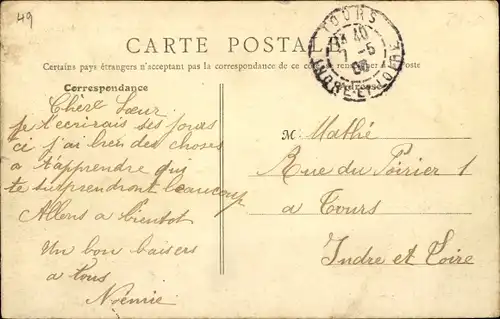 49
TOURS
INDRE-ET-LOIRE
CARTE POSTALE
Certains pays étrangers n'acceptant pas la correspondance de ce côté, se renseigner à la Poste
Correspondance
Adresse
Chère Sœur
je t'ecrirais ses jours
ci j'ai bien des choses
a t'apprendre qui
te surprendront beaucoup
Allons a bientot
Un bon baisers
a tous
Noémie
M. Mathé
Rue du Poirier 1
a Tours
Indre et Loire